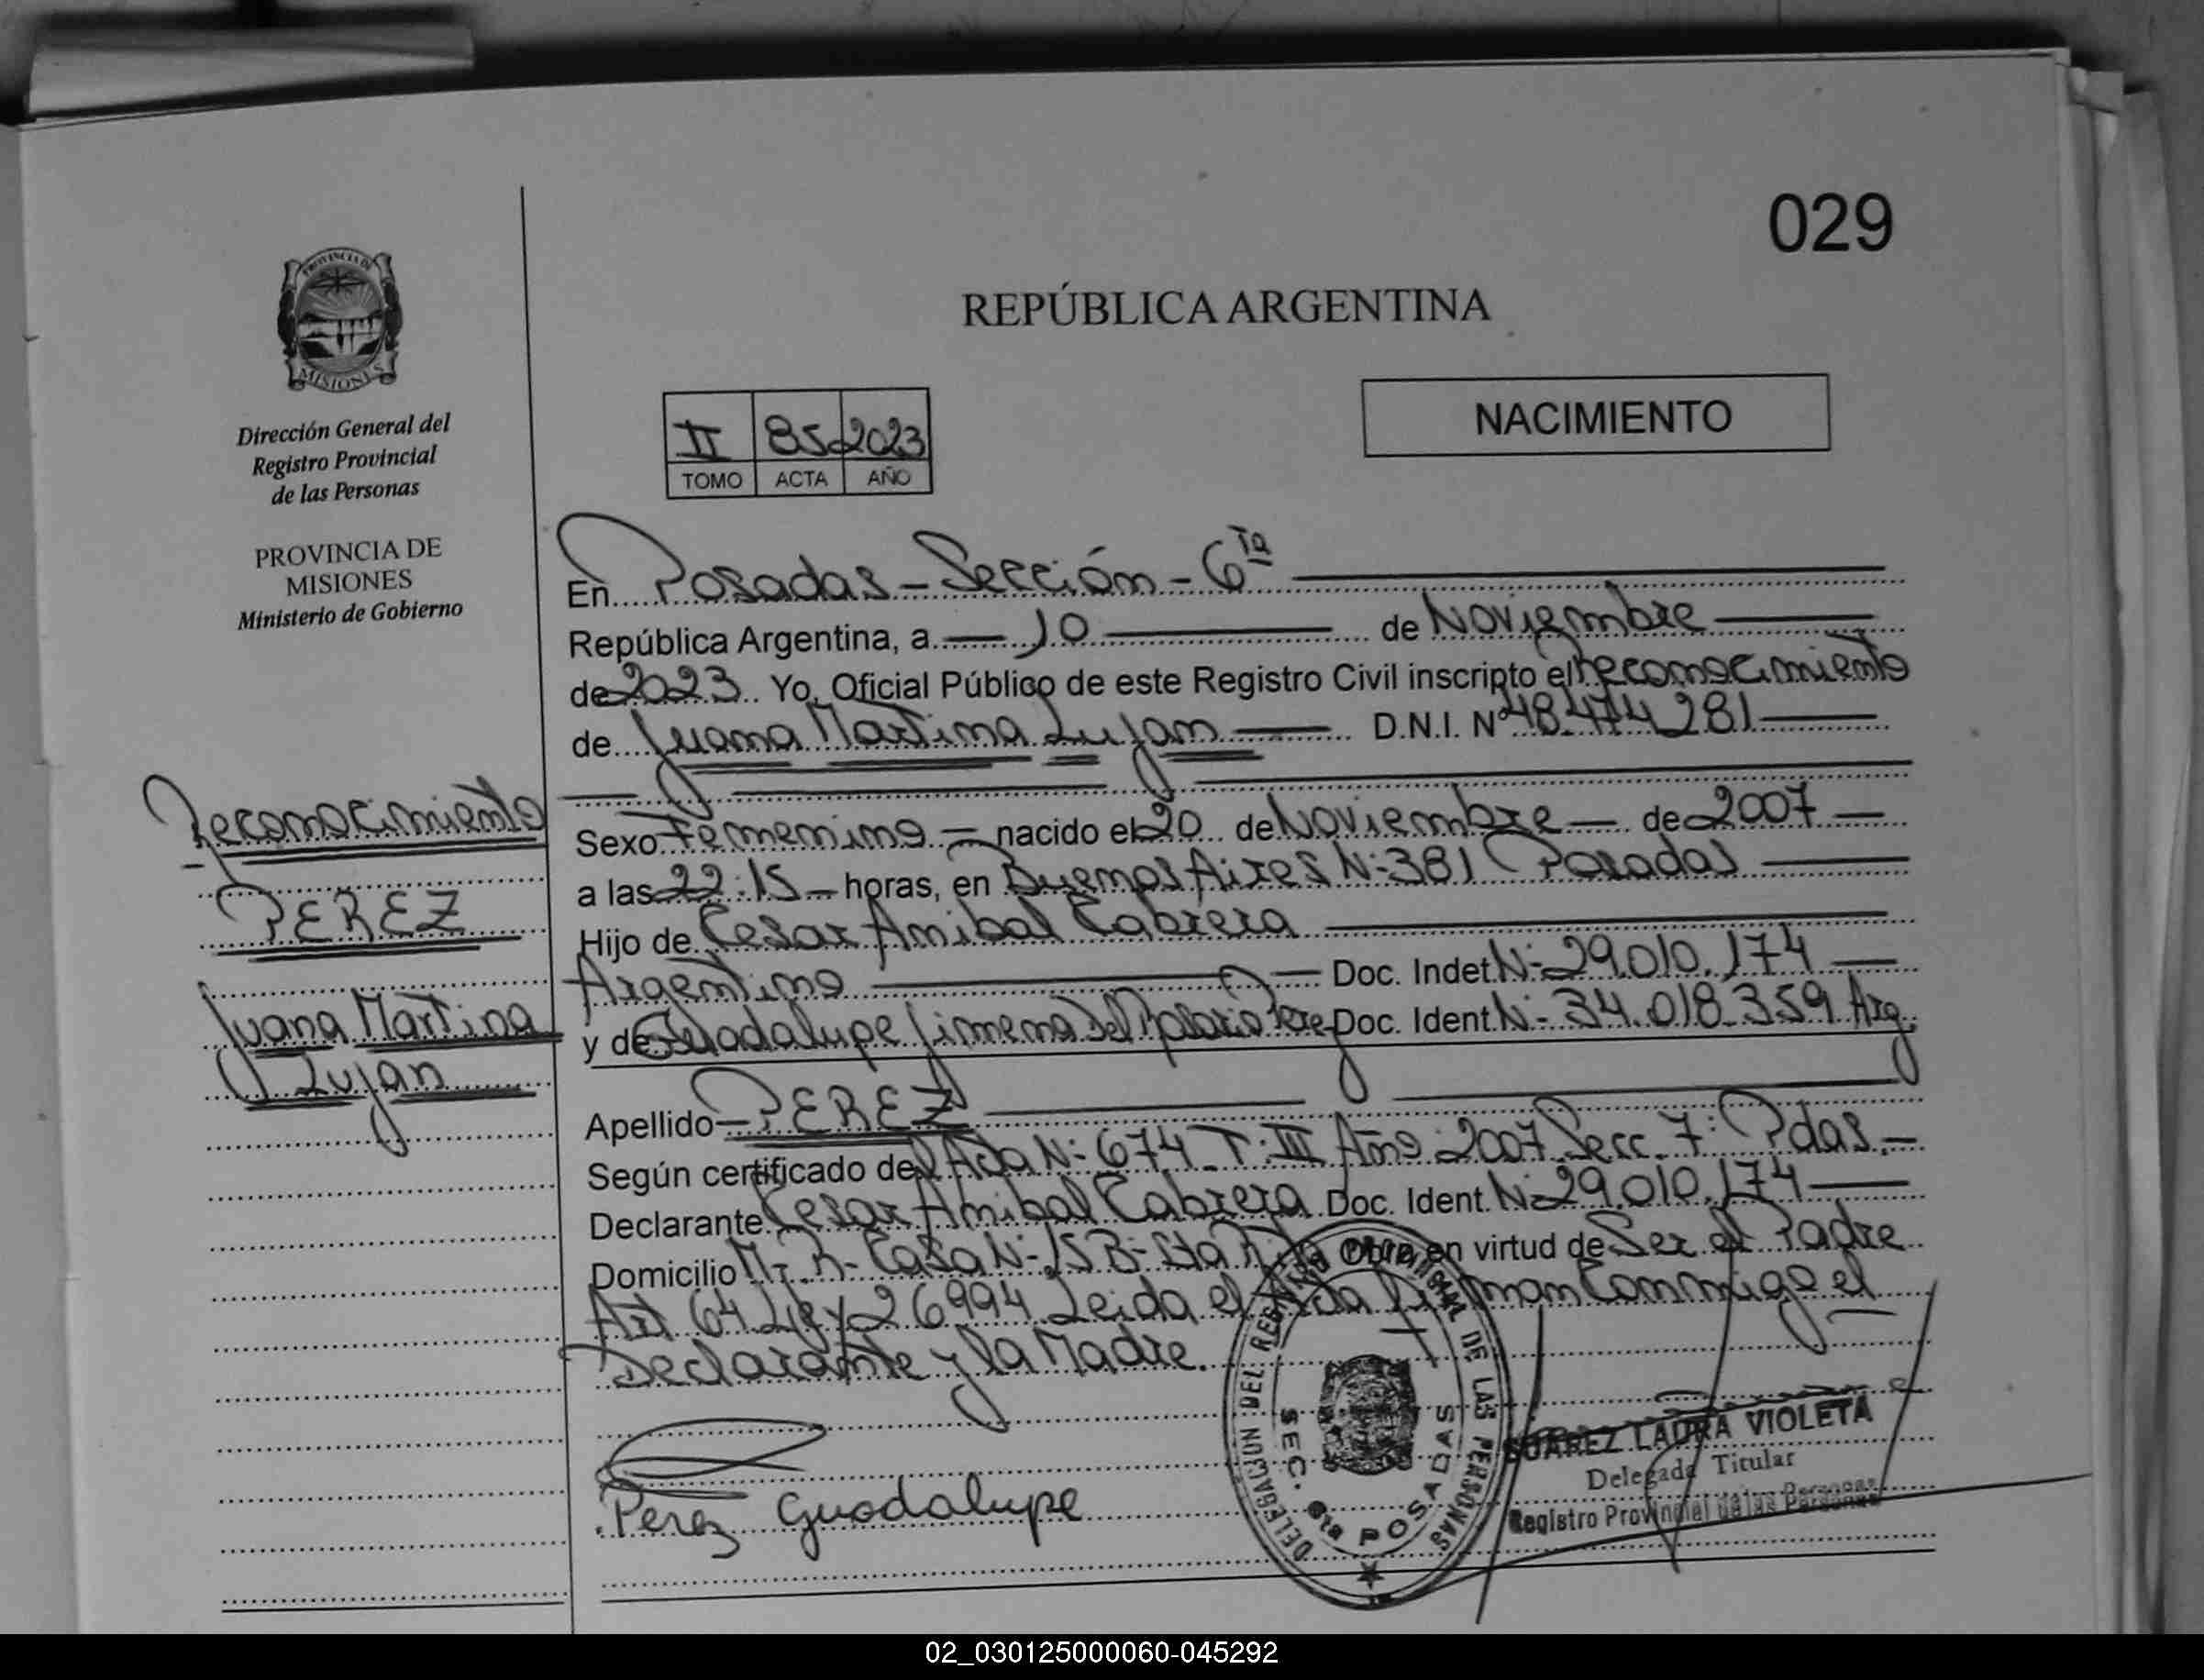 029
PROVINCIA DE
MISIONES
REPÚBLICA ARGENTINA
Dirección General del
Registro Provincial
de las Personas
PROVINCIA DE
MISIONES
Ministerio de Gobierno
II 85 2023
TOMO ACTA AÑO
NACIMIENTO
En Posadas - Sección - 6ta
República Argentina, a 10 de Noviembre
de 2023 Yo, Oficial Público de este Registro Civil inscripto el Reconocimiento
de Juana Martina Lujan D.N.I. Nº 48.474.281
Sexo Femenino nacido el 20 de Noviembre de 2007
a las 22:15 horas, en Buenos Aires N: 381 Posadas
Hijo de Cesar Anibal Cabrera
Argentino Doc. Indet. N- 29.010.174
y de Guadalupe Jimena Del Rosario Perez Doc. Ident. N- 34.018.359 Arg.
Apellido PEREZ
Según certificado del Acta N- 674 T: III Año: 2007 Secc. 7: Pdas.
Declarante Cesar Anibal Cabrera Doc. Ident. N- 29.010.174
Domicilio Casa N- Sta Obra en virtud de Ser el Padre
Art 64 Ley 26994 Leida el Acta Firman Conmigo el
Declarante y la Madre.
Perez Guadalupe
Reconocimiento
PEREZ
Juana Martina
Lujan
DELEGACIÓN DEL REGISTRO PROVINCIAL DE LAS PERSONAS
SEC. 6ta POSADAS
SUAREZ LAURA VIOLETA
Delegada Titular
Registro Provincial de las Personas
02_030125000060-045292